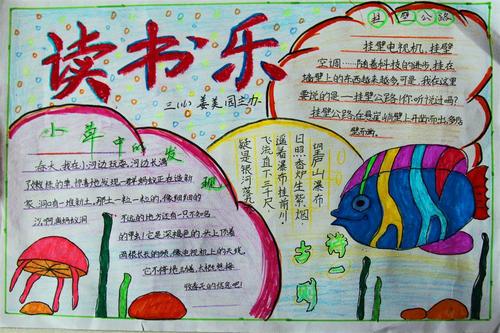 读书乐
三(小) 姜美园主办
挂壁公路
挂壁电视机,挂壁
空调……随着科技的进步,挂在
墙壁上的东西越来越多,可是,我在这里
要说的是——挂壁公路!你听说过吗?
挂壁公路,在悬崖峭壁上开凿而出,多为
壁而画。
小草中的发现
春天,我在小河边玩耍,河边长满
了嫩绿的草,惊喜地发现一群蚂蚁正在造新
家,洞口有一堆新土,那土一粒一粒的,像细细的
沙,啊,真
不远的地方还有一只不知名
的甲虫!它是深褐色的,头上顶着
两根长长的须,像电视机上的天线,
它不停地
吸春天的信息吧!
望庐山瀑布
日照香炉生紫烟,
遥看瀑布挂前川。
飞流直下三千尺,
疑是银河落九
古诗一